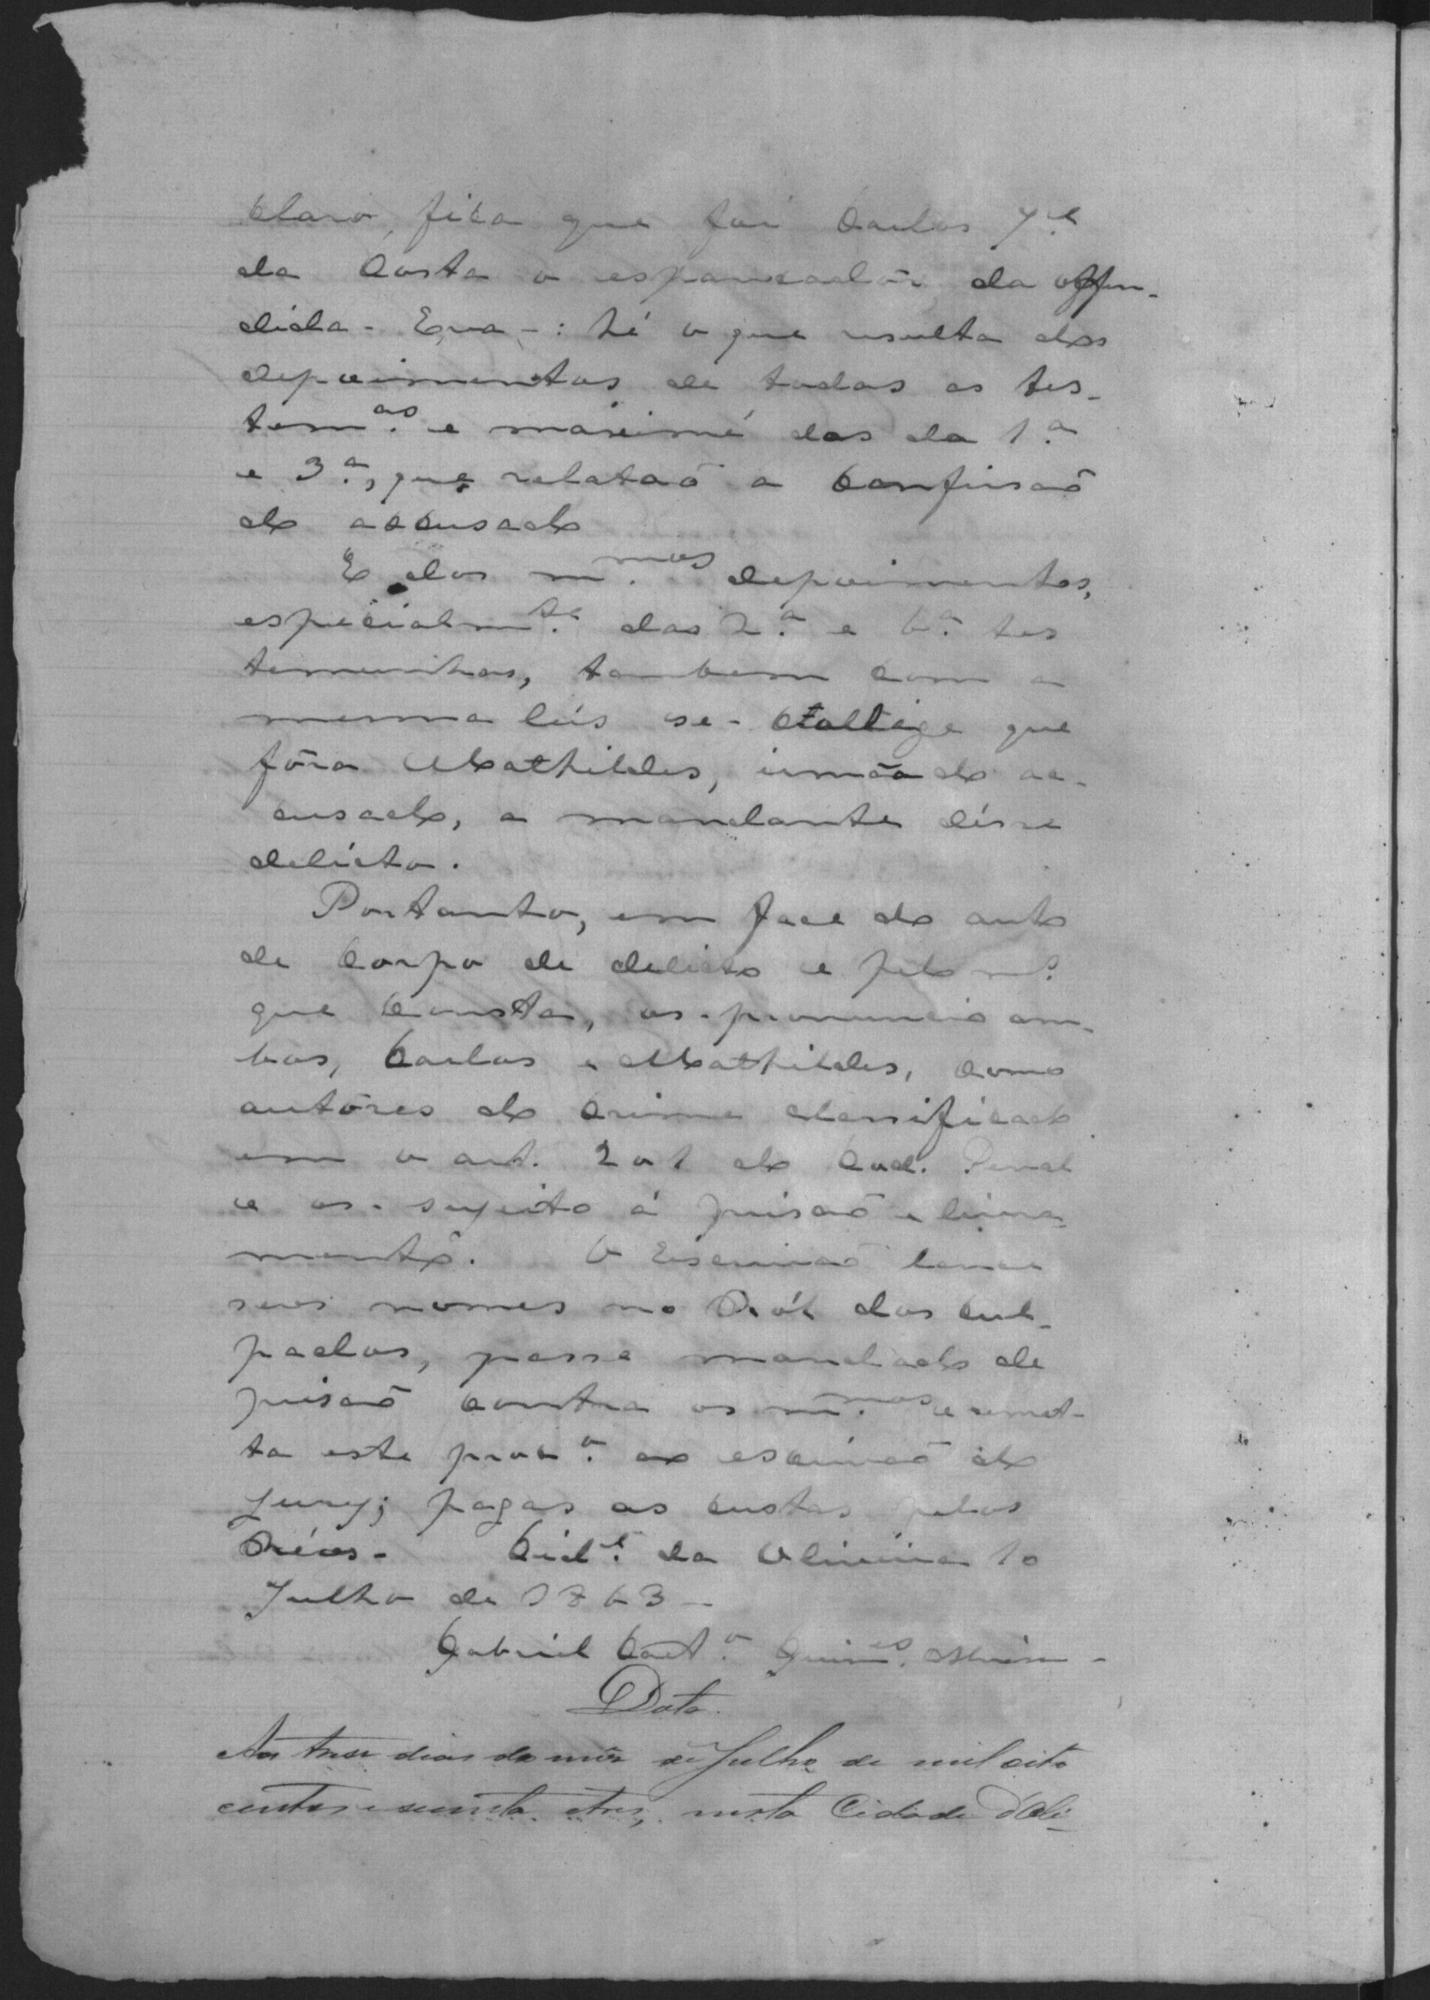 Claro, fica que foi Carlos J.e
da Costa o espancadôr da offen-
dida - Eva -: hé o que resulta dos
depoimentos de todas as tes-
tem.as e maximé das da 1.a
e 3.a, que relataõ a confissaõ
do accusado
E dos m.mos depoimentos,
especialm.te das 2.a e 6.a tes
temunhas, tambem com a
mesma lús se-collige que
fôra Mathildes, irmãa do ac-
cusado, a mandante désse
delicto.
Portanto, em face do auto
de corpo de delicto e pelo m.s
que consta, os-pronuncio am-
bos, Carlos e Mathildes, como
autôres do crime classificado
em o art. 201 do Cod. Penal
e os-sugeito á prisaõ e livra-
mento. O Escrivaõ lance
seos nomes no Ról dos cul-
pados, passe mandado de
prisaõ contra os m.mos e remet-
ta este proc.o ao escrivaõ do
Jury; pagas as custas pelos
Réos- Cid.e da Oliveira 10
Julho de 1863-
Gabriel Caet.o Guim.es
Data.
Aos trese dias do mês de Julho de mil oito
centos e secenta e tres, nesta Cidade d'Oli-